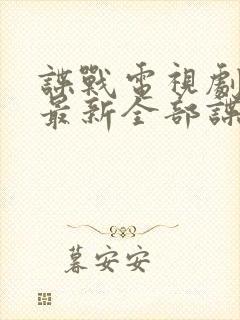 諜戰電視劇
最新全部諜
暮安安